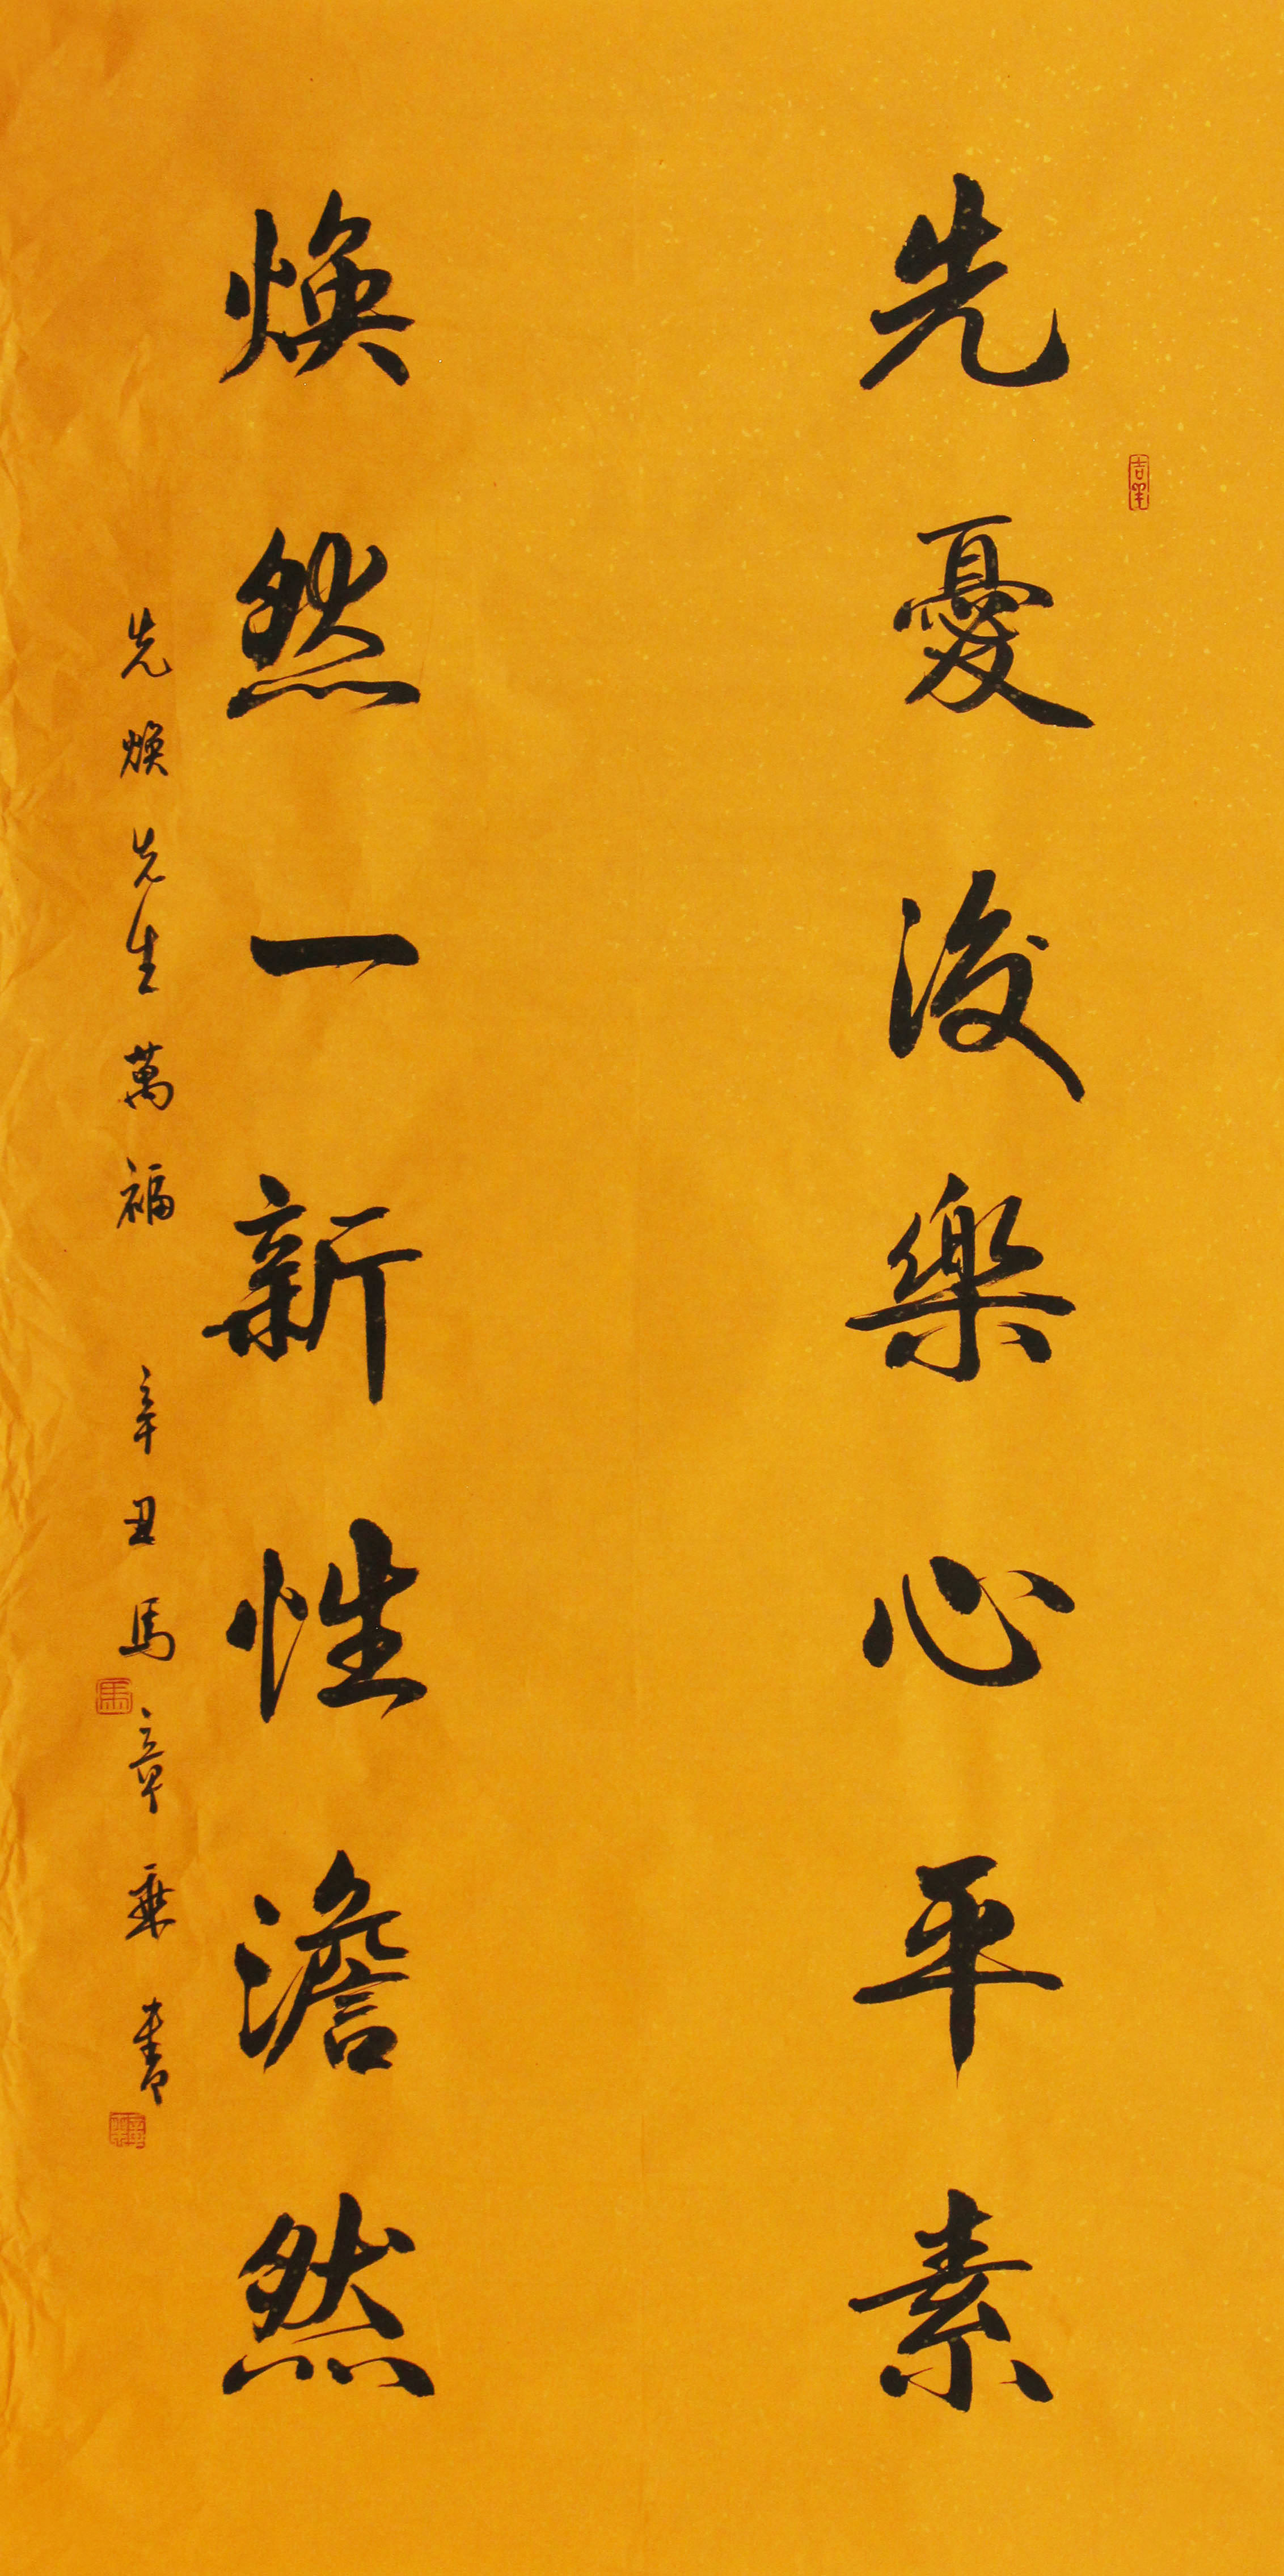 先憂後樂心平素
煥然一新性澹然
先煥先生萬福 辛丑馬章乘書
吉羊
馬